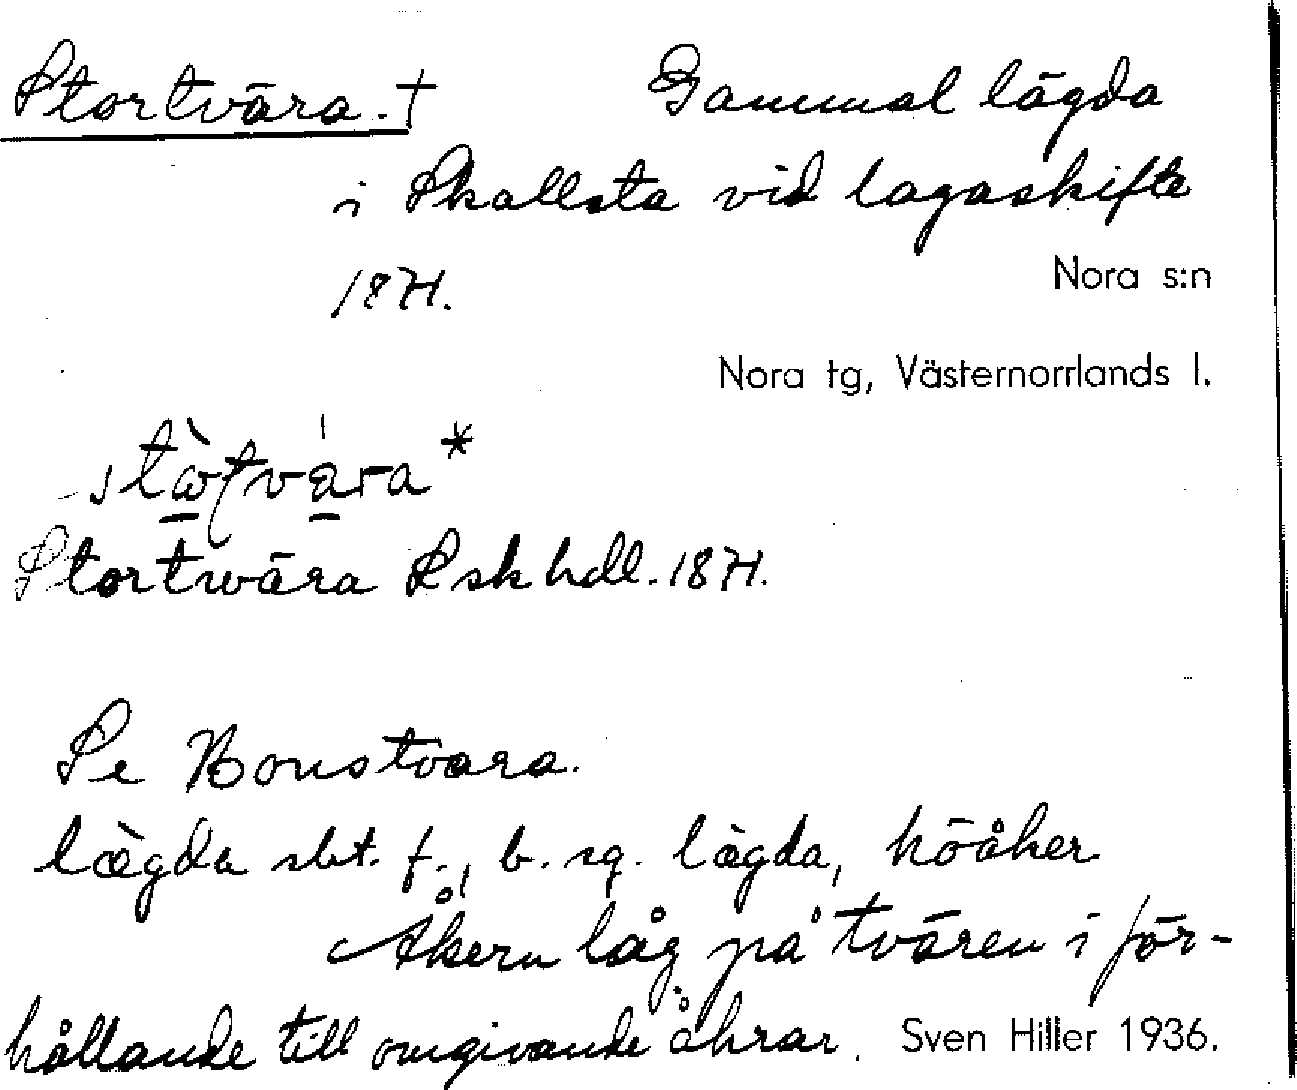 Stortvära. †
Gammal lägda
i Skallsta vid lagaskifte
1871.
Nora s:n
Nora tg, Västernorrlands l.
Stortwära Lsk hdl. 1871.
Se Bonstvära.
lægda sbt. f., b. sg. lægda, höåker
Åkern låg på tvären i för-
hållande till omgivande åkrar.
Sven Hiller 1936.